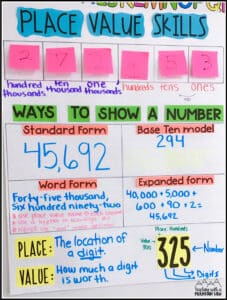 PLACE VALUE SKILLS
2 7 , 5 3
hundred ten one hundreds tens ones
thousands thousands thousands
WAYS TO SHOW A NUMBER
Standard Form Base Ten model
45,692 294
Word Form Expanded form
Forty-five thousand, 40,000 + 5,000 +
Six hundred ninety-two 600 + 90 + 2 =
45,692
PLACE: The location of a digit.
VALUE: How much a digit is worth.
Place: Hundreds
Value
325
Number
Digits